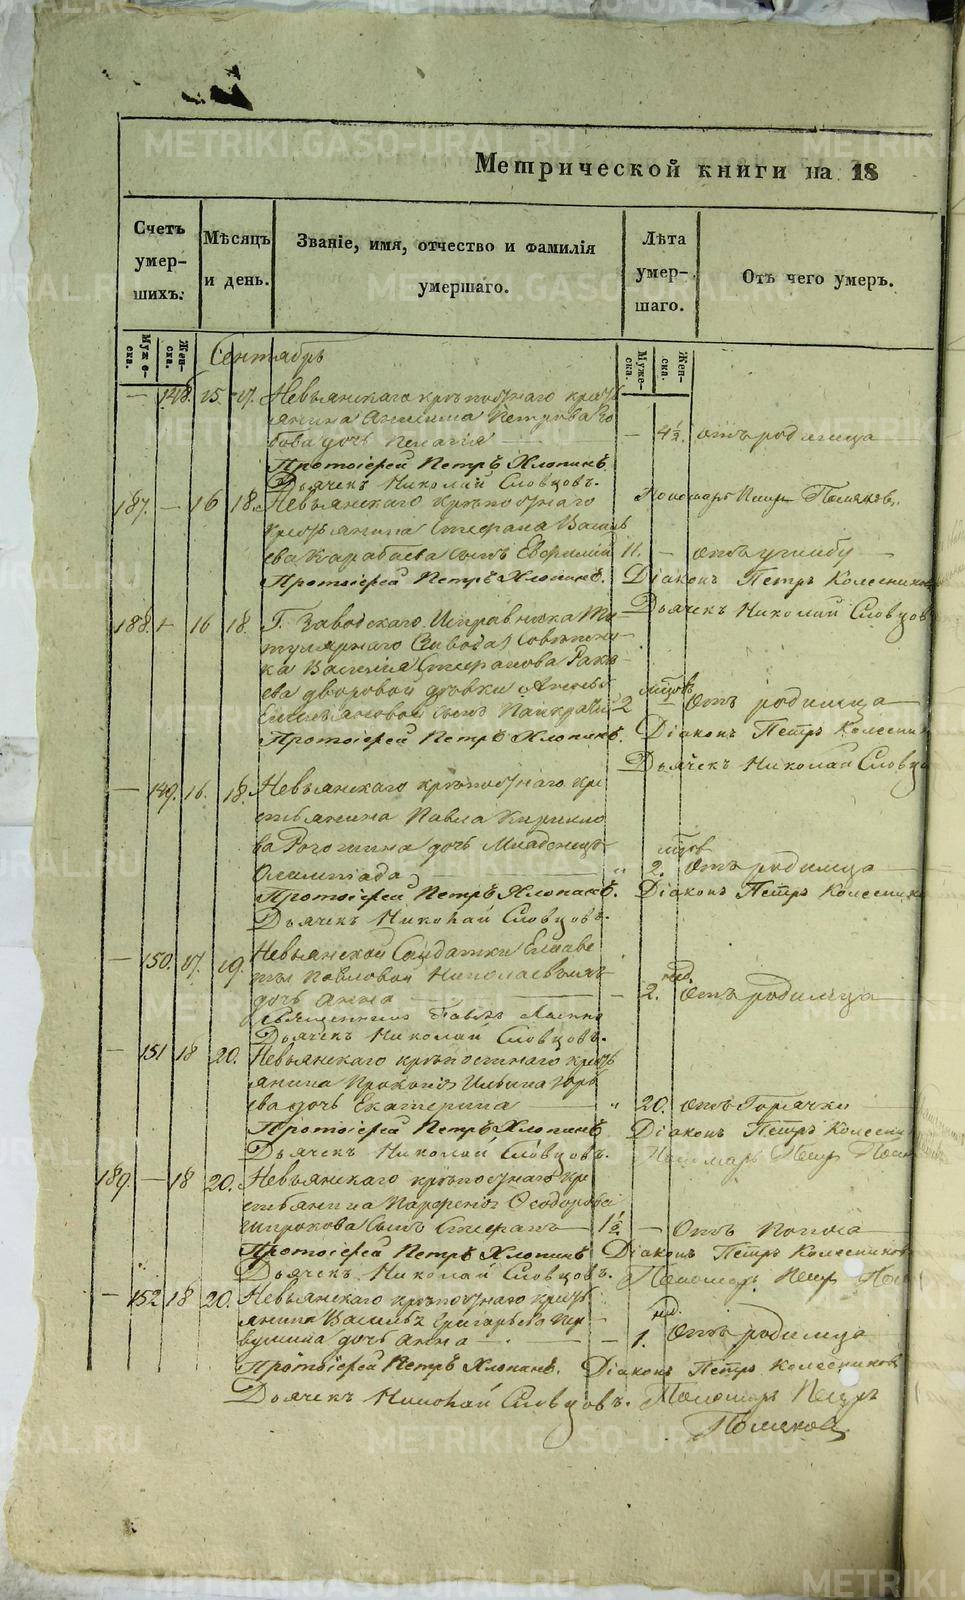 Метрической книги на 18
Счетъ умер- шихъ.
Мѣсяцъ и день.
Званіе, имя, отчество и фамилія умершаго.
Лѣта умер- шаго.
Отъ чего умеръ.
Муже- ска.
Жен- ска.
Муже- ска.
Жен- ска.
Сентябрь
— 148. 15. 17. Невьянскаго крѣпостнаго кресть
янина Петрова
бова дочь Пелагія — 4½. отъ родимца
Протоіерей Петръ Хлопинъ.
Дьячекъ Николай Словцовъ.
Пономарь Петръ Поляковъ.
187. — 16 18. Невьянскаго крѣпостнаго
крестьянина Стефана Василь
ева Карабаева сынъ Евфимій 11. — отъ угибу —
Протоіерей Петръ Хлопинъ. Діаконъ Петръ Колесников
Дьячекъ Николай Словцов
188. + 16 18. Г. Заводскаго Исправника Ти
тулярнаго Совѣтни-
ка Василія Стефанова
ева дворовой дѣвки
сынъ Панкратій 2 мѣсяцов — Отъ родимца
Протоіерей Петръ Хлопинъ. Діаконъ Петръ Колесник
Дьячекъ Николай Словцо
— 149. 16. 18. Невьянскаго крѣпостнаго кре
стьянина Павла Кирилло
ва Рогожина дочь Младенецъ
Олимпіада — " 2. мѣсяцов Отъ родимца
Протоіерей Петръ Хлопинъ. Діаконъ Петръ Колесник
Дьячекъ Николай Словцовъ.
— 150. 17. 19. Невьянской Солдатки Елизаве
ты Павловой
дочь Анна — — 2. нед. Отъ родимца
Священникъ Павелъ
Дьячекъ Николай Словцовъ.
— 151 18 20. Невьянскаго крѣпостнаго кресть
янина Прокопія Ильина
ева дочь Екатерина — " 20. отъ Горячки
Протоіерей Петръ Хлопинъ Діаконъ Петръ Колесни
Дьячекъ Николай Словцовъ. Пономарь Петръ Пол
189. — 18 20. Невьянскаго крѣпостнаго кре
стьянина Парфенія Ѳеодорова
Широкова сынъ Стефанъ — 1½ — Отъ поноса
Протоіерей Петръ Хлопинъ Діаконъ Петръ Колесников
Дьячекъ Николай Словцовъ. Пономарь Петръ Пол
— 152 18 20. Невьянскаго крѣпостнаго кресть
янина Василья Григорьева
дочь Анна — — 1. нед. Отъ родимца
Протоіерей Петръ Хлопинъ. Діаконъ Петръ Колесников
Дьячекъ Николай Словцовъ. Пономарь Петръ
Поляковъ.
METRIKI.GASO-URAL.RU